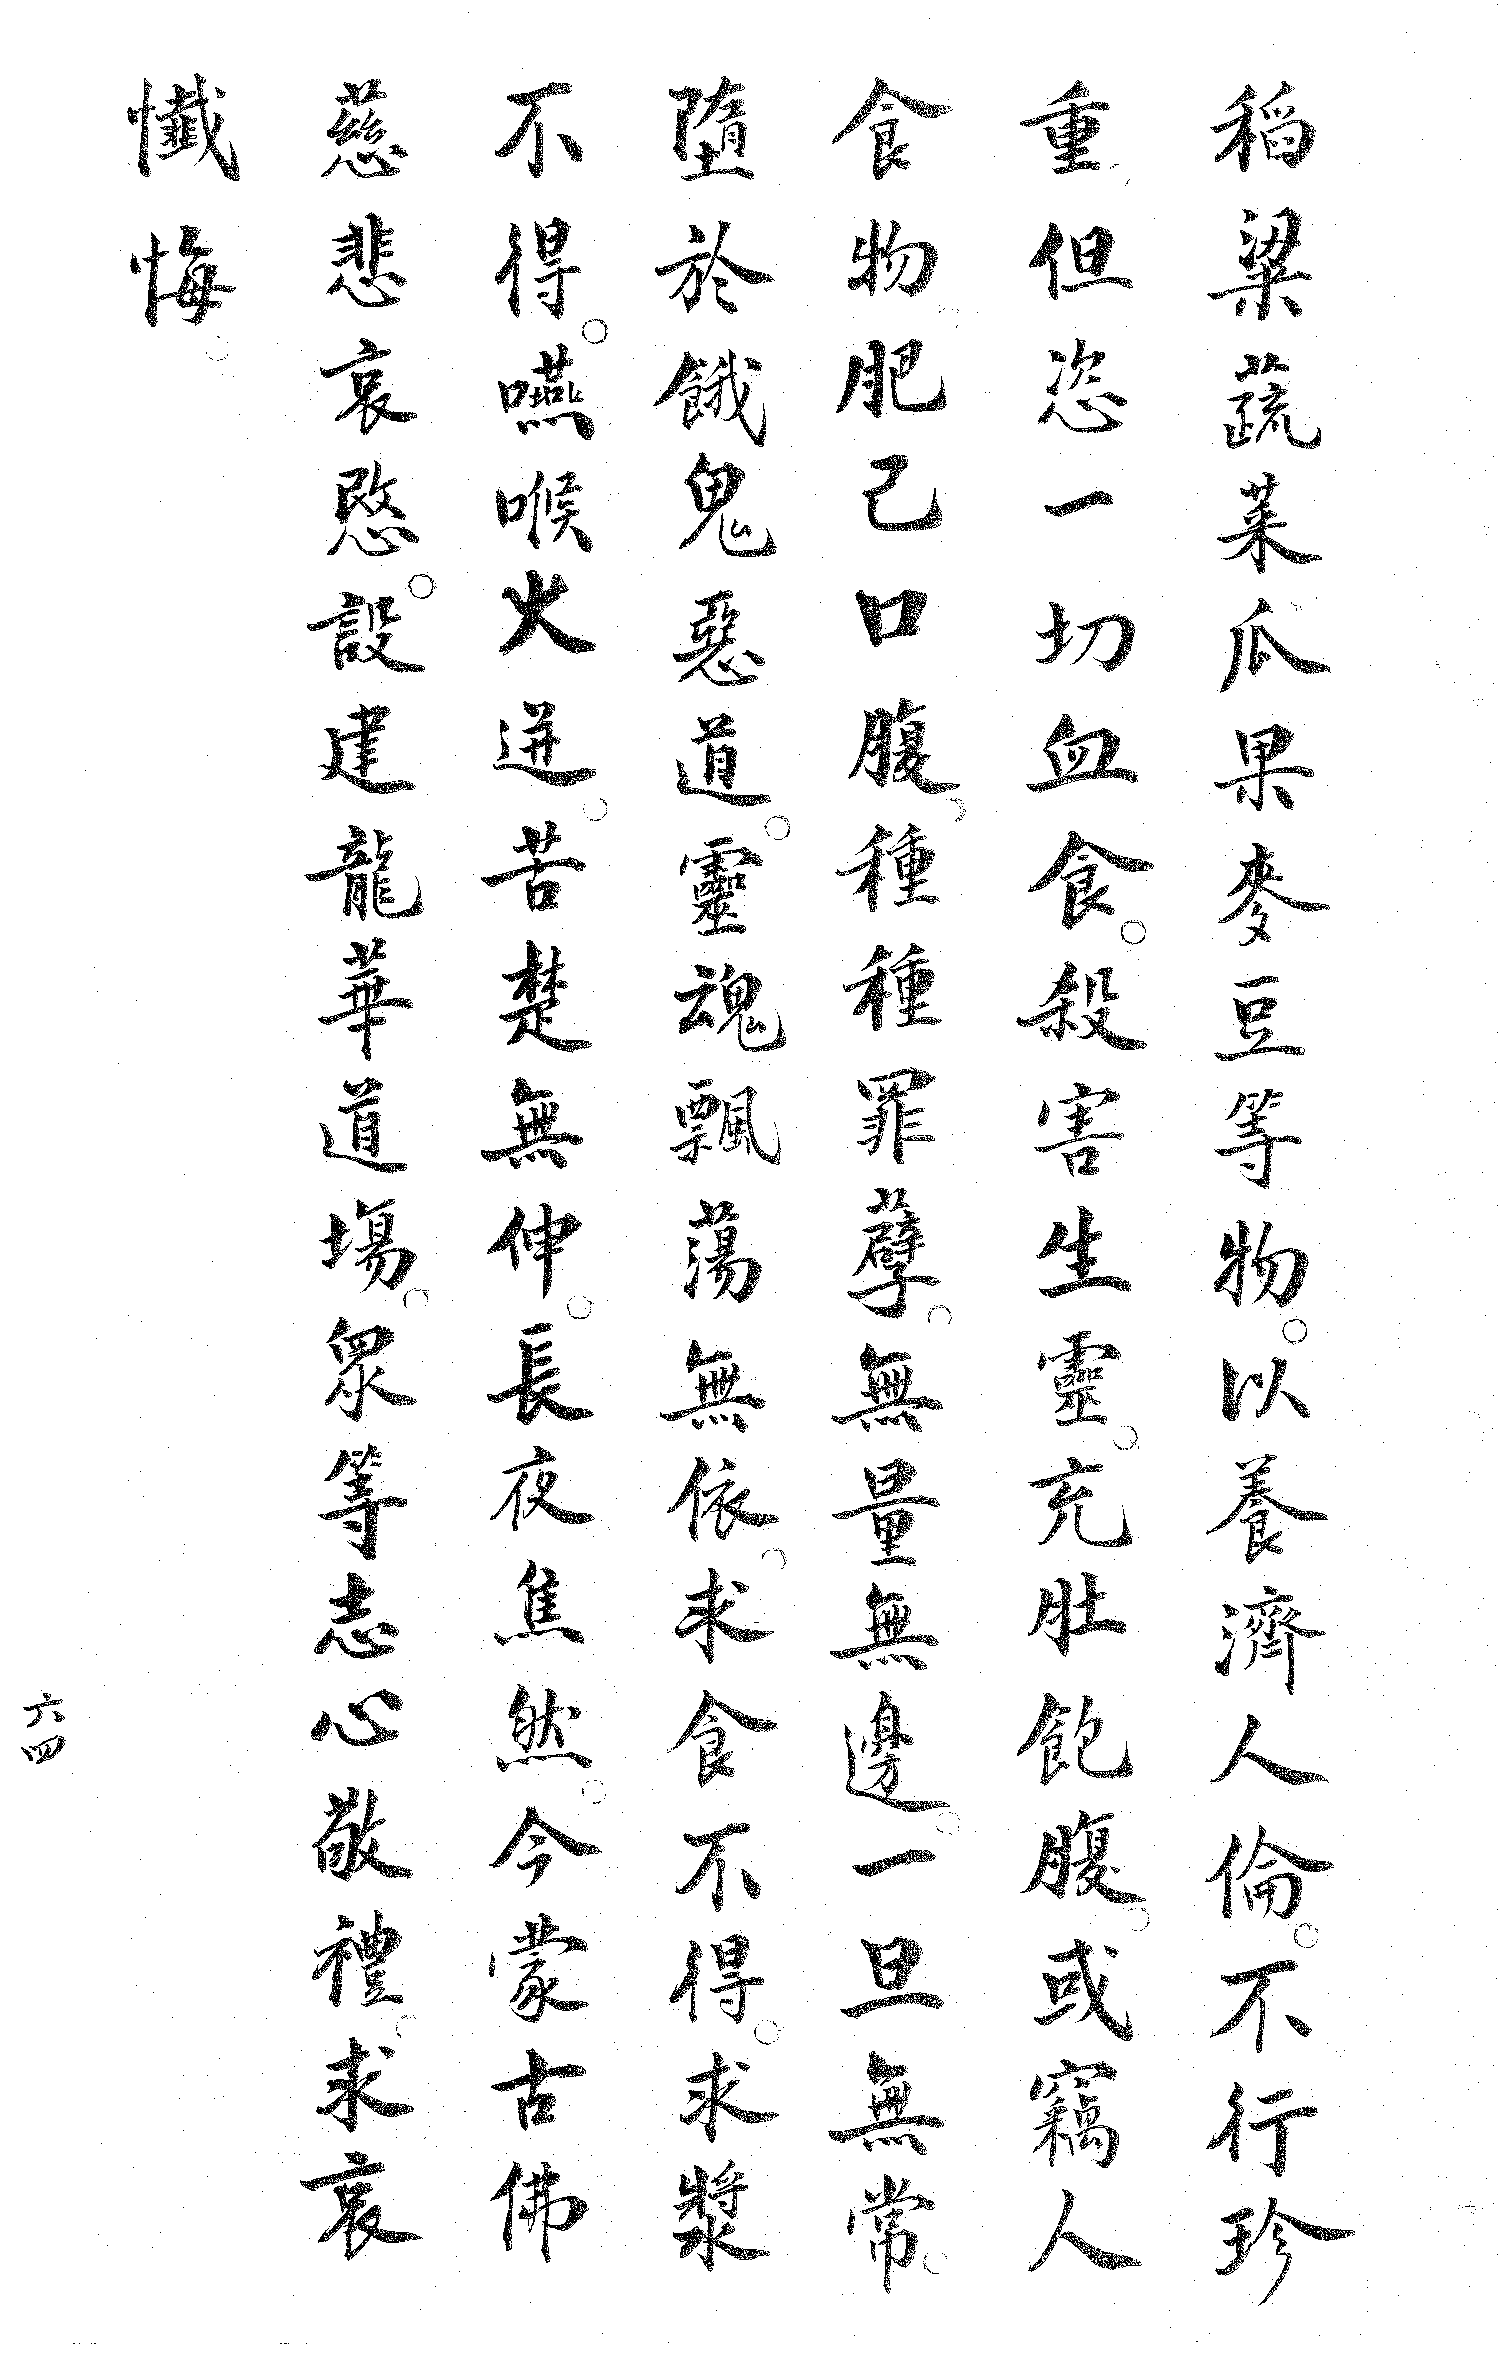 稻粱蔬菜瓜果麥豆等物。以養濟人倫。不行珍
重但恣一切血食。殺害生靈。充肚飽腹。或竊人
食物。肥己口腹。種種罪孽。無量無邊。一旦無常。
墮於餓鬼惡道。靈魂飄蕩無依。求食不得。求漿
不得。嚥喉火迸。苦楚無伸。長夜焦然。今蒙古佛
慈悲哀愍。設建龍華道場。眾等志心敬禮。求哀
懺悔。
六四